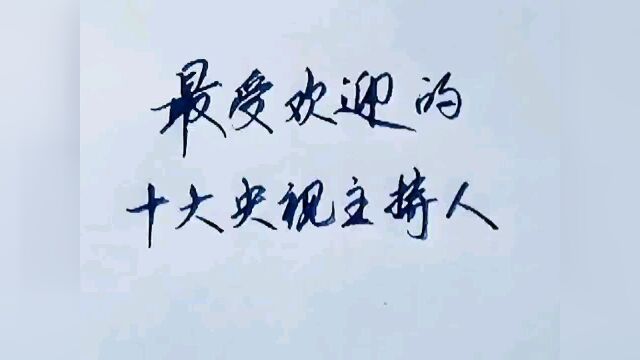 最受欢迎的
十大央视主持人